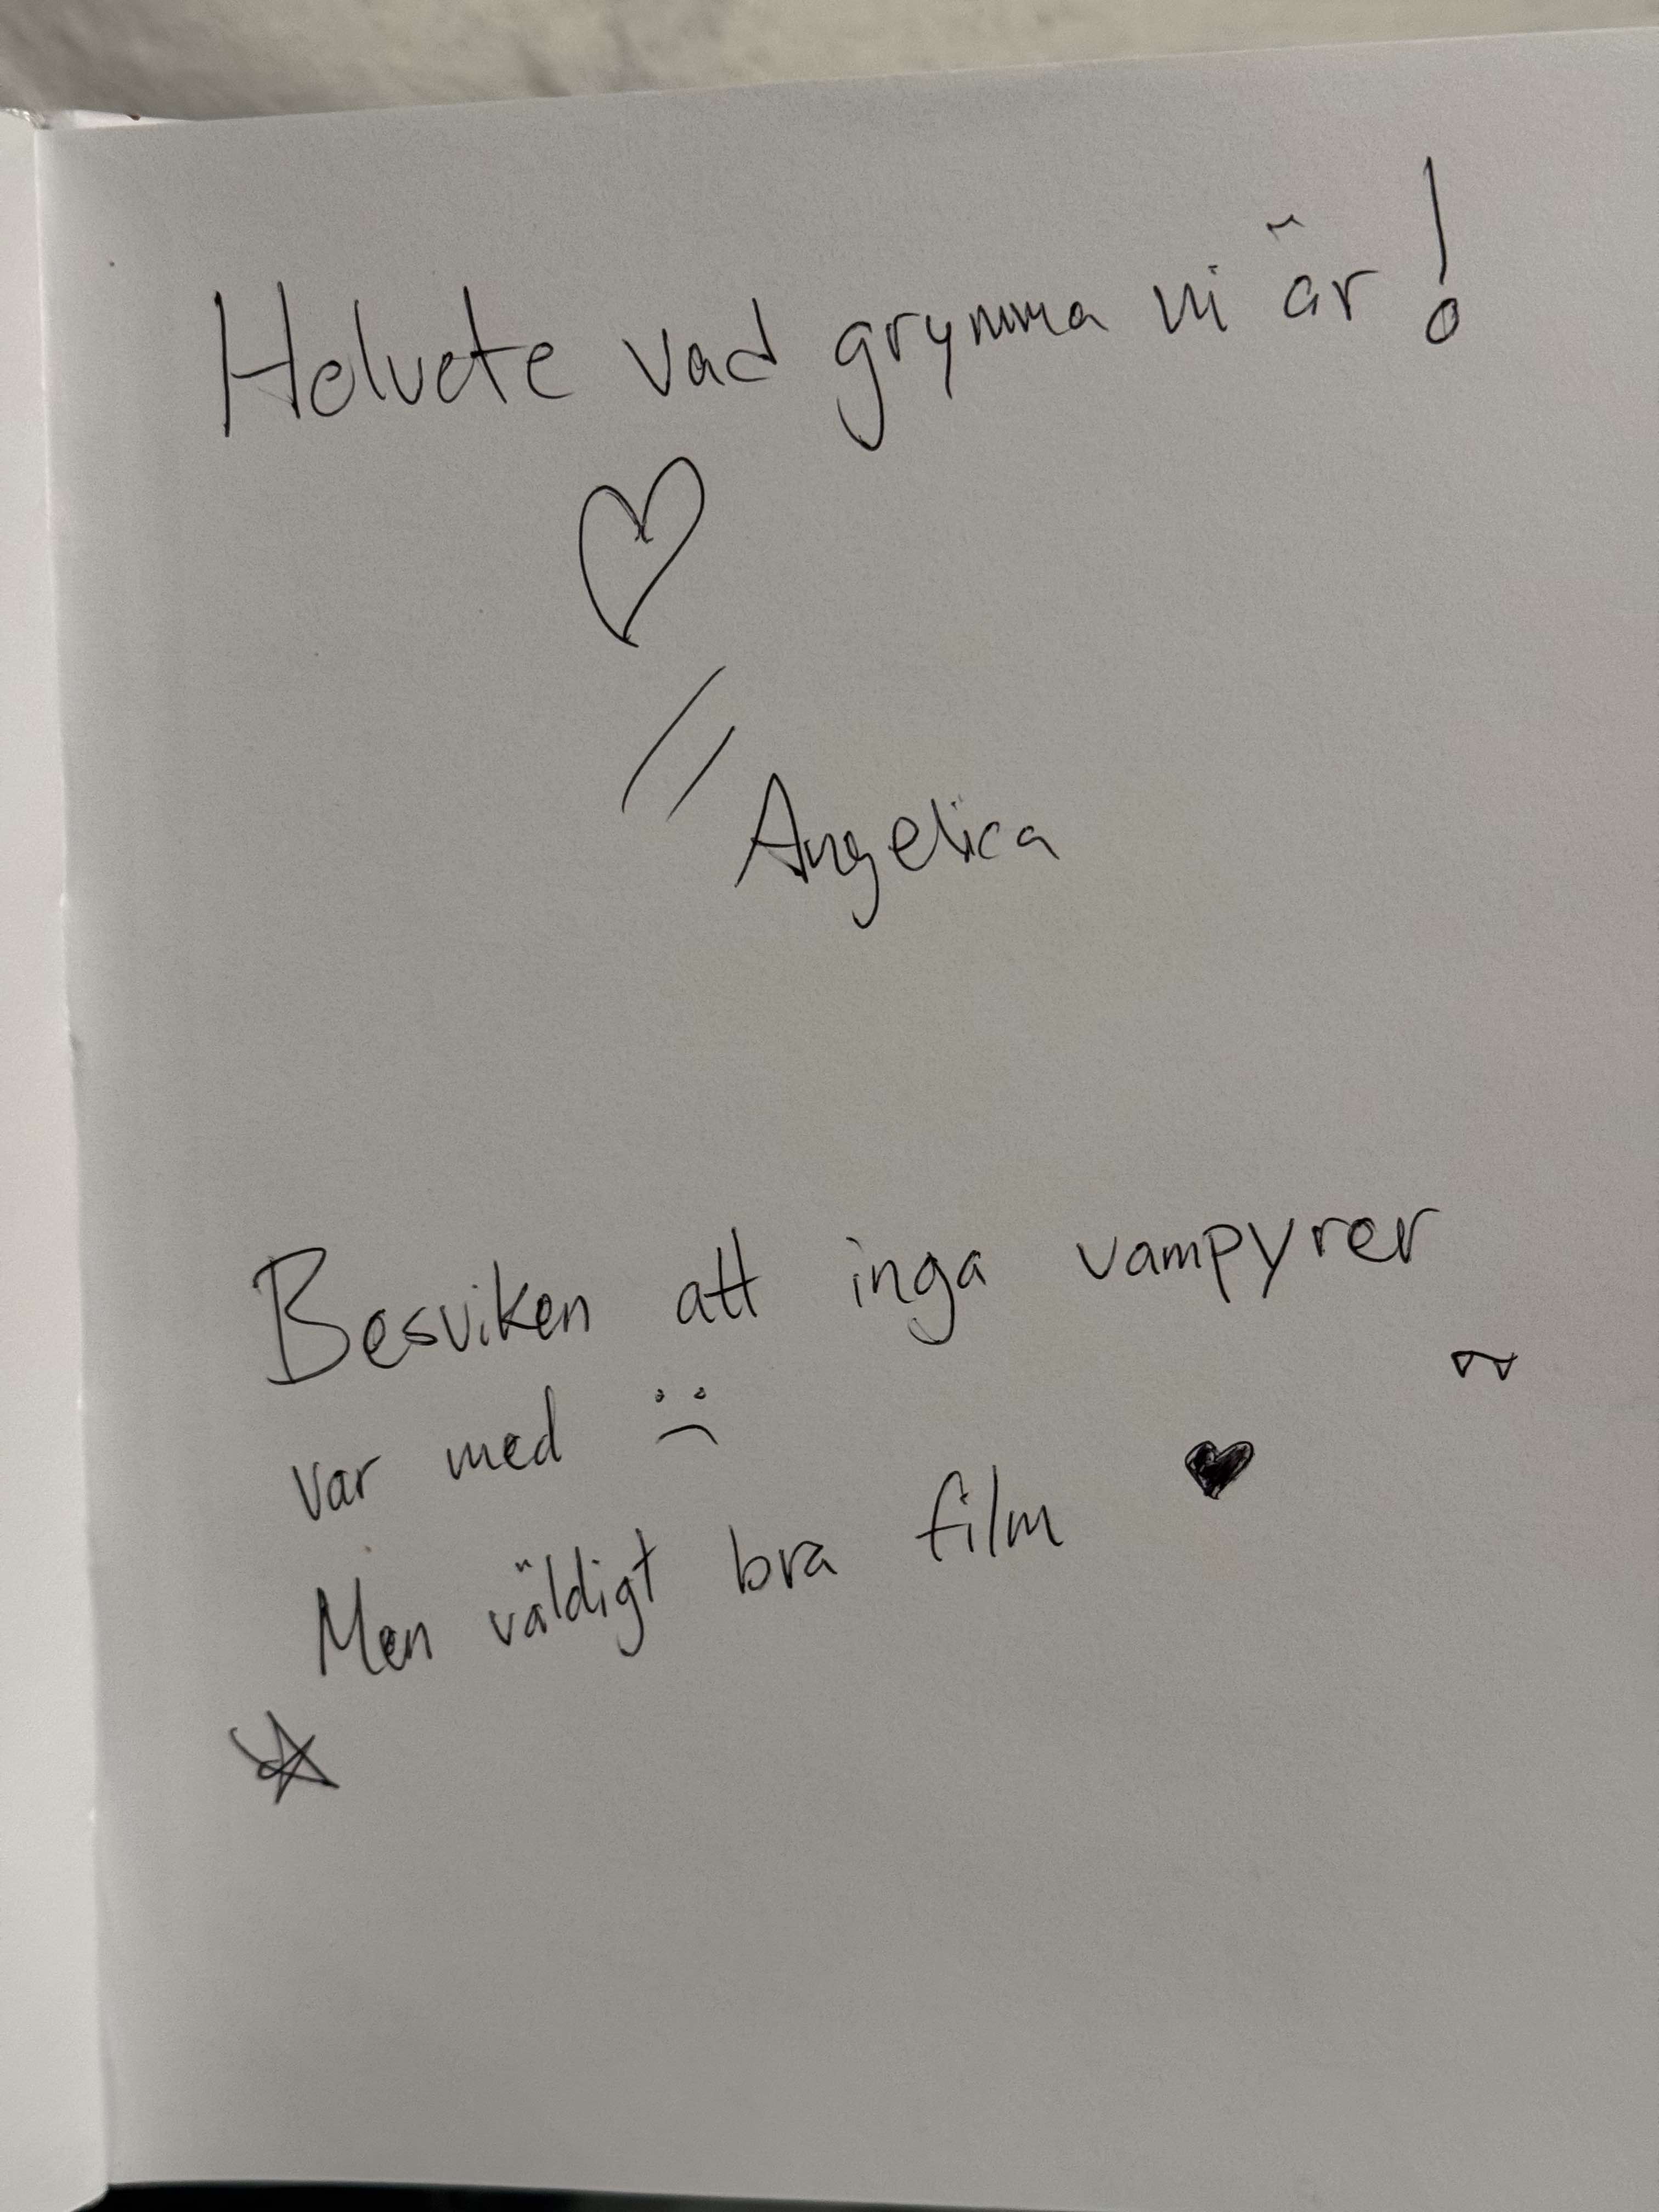 Helvete vad grymma ni är!
♡
// Angelica
Besviken att inga vampyrer
var med :(
Men väldigt bra film ♥